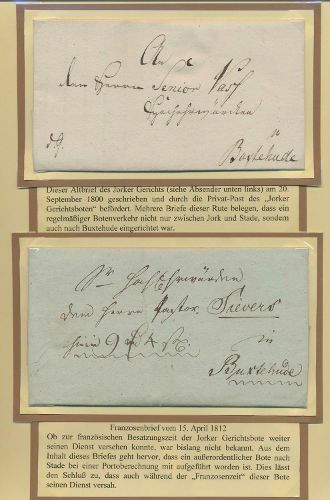 An
den Herrn Senior Vast
Hochehrwürden
in
d. G.
Boxtehude
Dieser Altbrief des Jorker Gerichts (siehe Absender unten links) am 20.
September 1800 geschrieben und durch die Privat-Post des „Jorker
Gerichtsboten" befördert. Mehrere Briefe dieser Rute belegen, dass ein
regelmäßiger Botenverkehr nicht nur zwischen Jork und Stade, sondern
auch nach Buxtehude eingerichtet war.
Sr Hochehrwürden
dem Herrn Pastor Sievers
in
Buxtehude
Franzosenbrief vom 15. April 1812
Ob zur französischen Besatzungszeit der Jorker Gerichtsbote weiter
seinen Dienst versehen konnte, war bislang nicht bekannt. Aus dem
Inhalt dieses Briefes geht hervor, dass ein außerordentlicher Bote nach
Stade bei einer Portoberechnung mit aufgeführt worden ist. Dies lässt
den Schluß zu, dass auch während der „Franzosenzeit" dieser Bote
seinen Dienst versah.